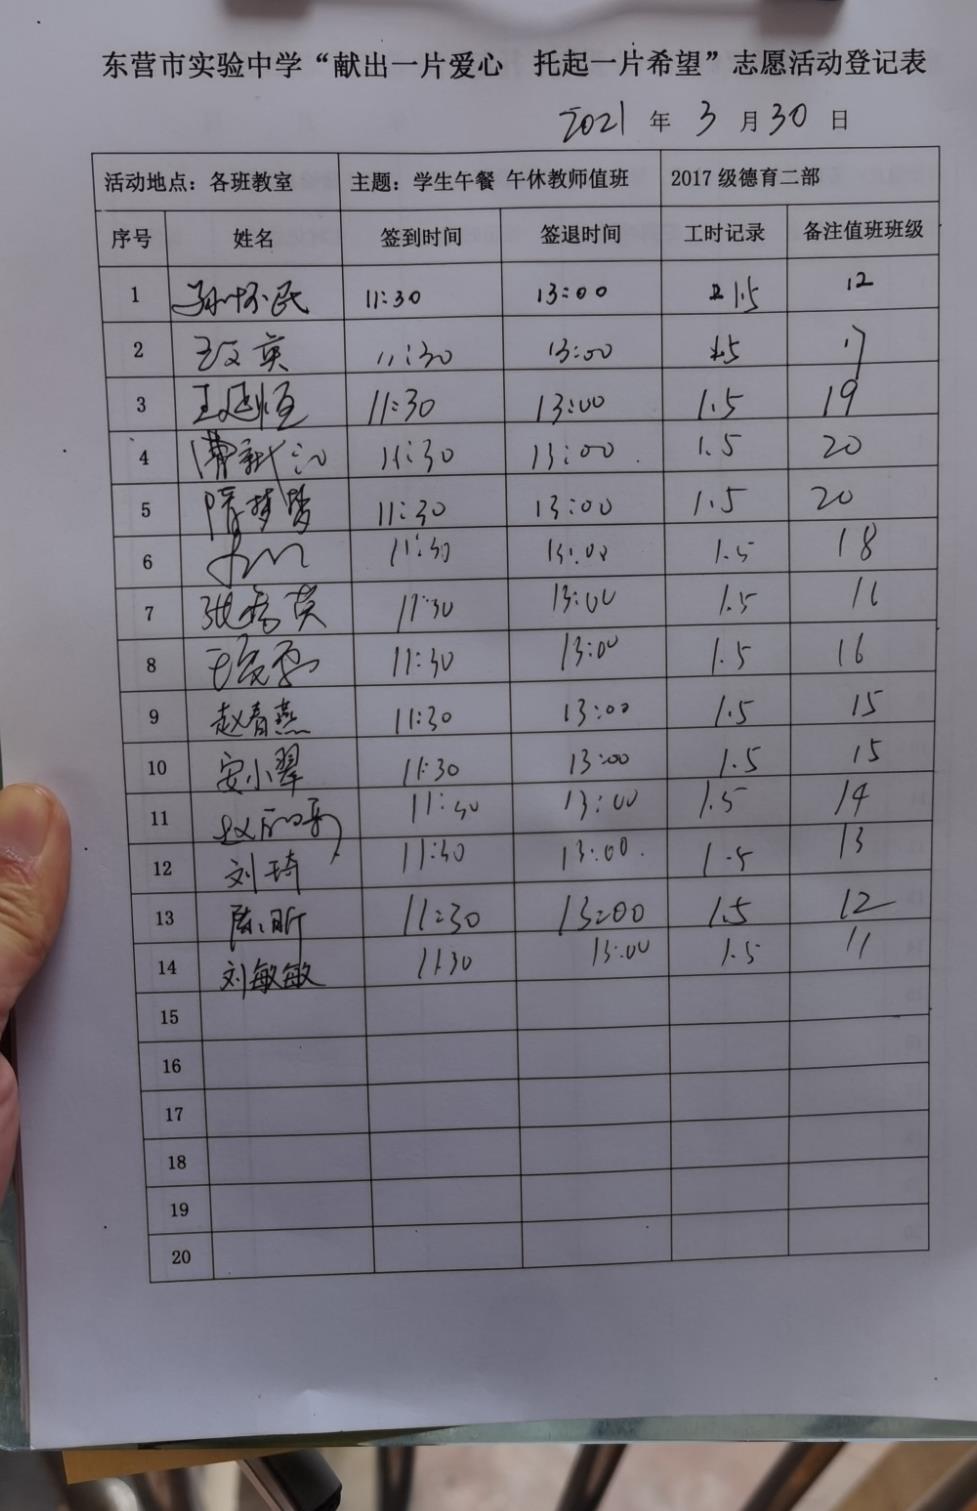 东营市实验中学“献出一片爱心 托起一片希望”志愿活动登记表
2021 年 3 月 30 日
活动地点：各班教室 主题：学生午餐 午休教师值班 2017 级德育二部
序号 姓名 签到时间 签退时间 工时记录 备注值班班级
1 11:30 13:00 1.5 12
2 11:30 13:00 1.5 17
3 王延恒 11:30 13:00 1.5 19
4 11:30 13:00 1.5 20
5 隋梦梦 11:30 13:00 1.5 20
6 11:30 13:00 1.5 18
7 张秀英 11:30 13:00 1.5 11
8 11:30 13:00 1.5 16
9 赵春燕 11:30 13:00 1.5 15
10 安小翠 11:30 13:00 1.5 15
11 11:30 13:00 1.5 14
12 刘琦 11:30 13:00 1.5 13
13 陈昕 11:30 13:00 1.5 12
14 刘敏敏 11:30 13:00 1.5 11
15
16
17
18
19
20